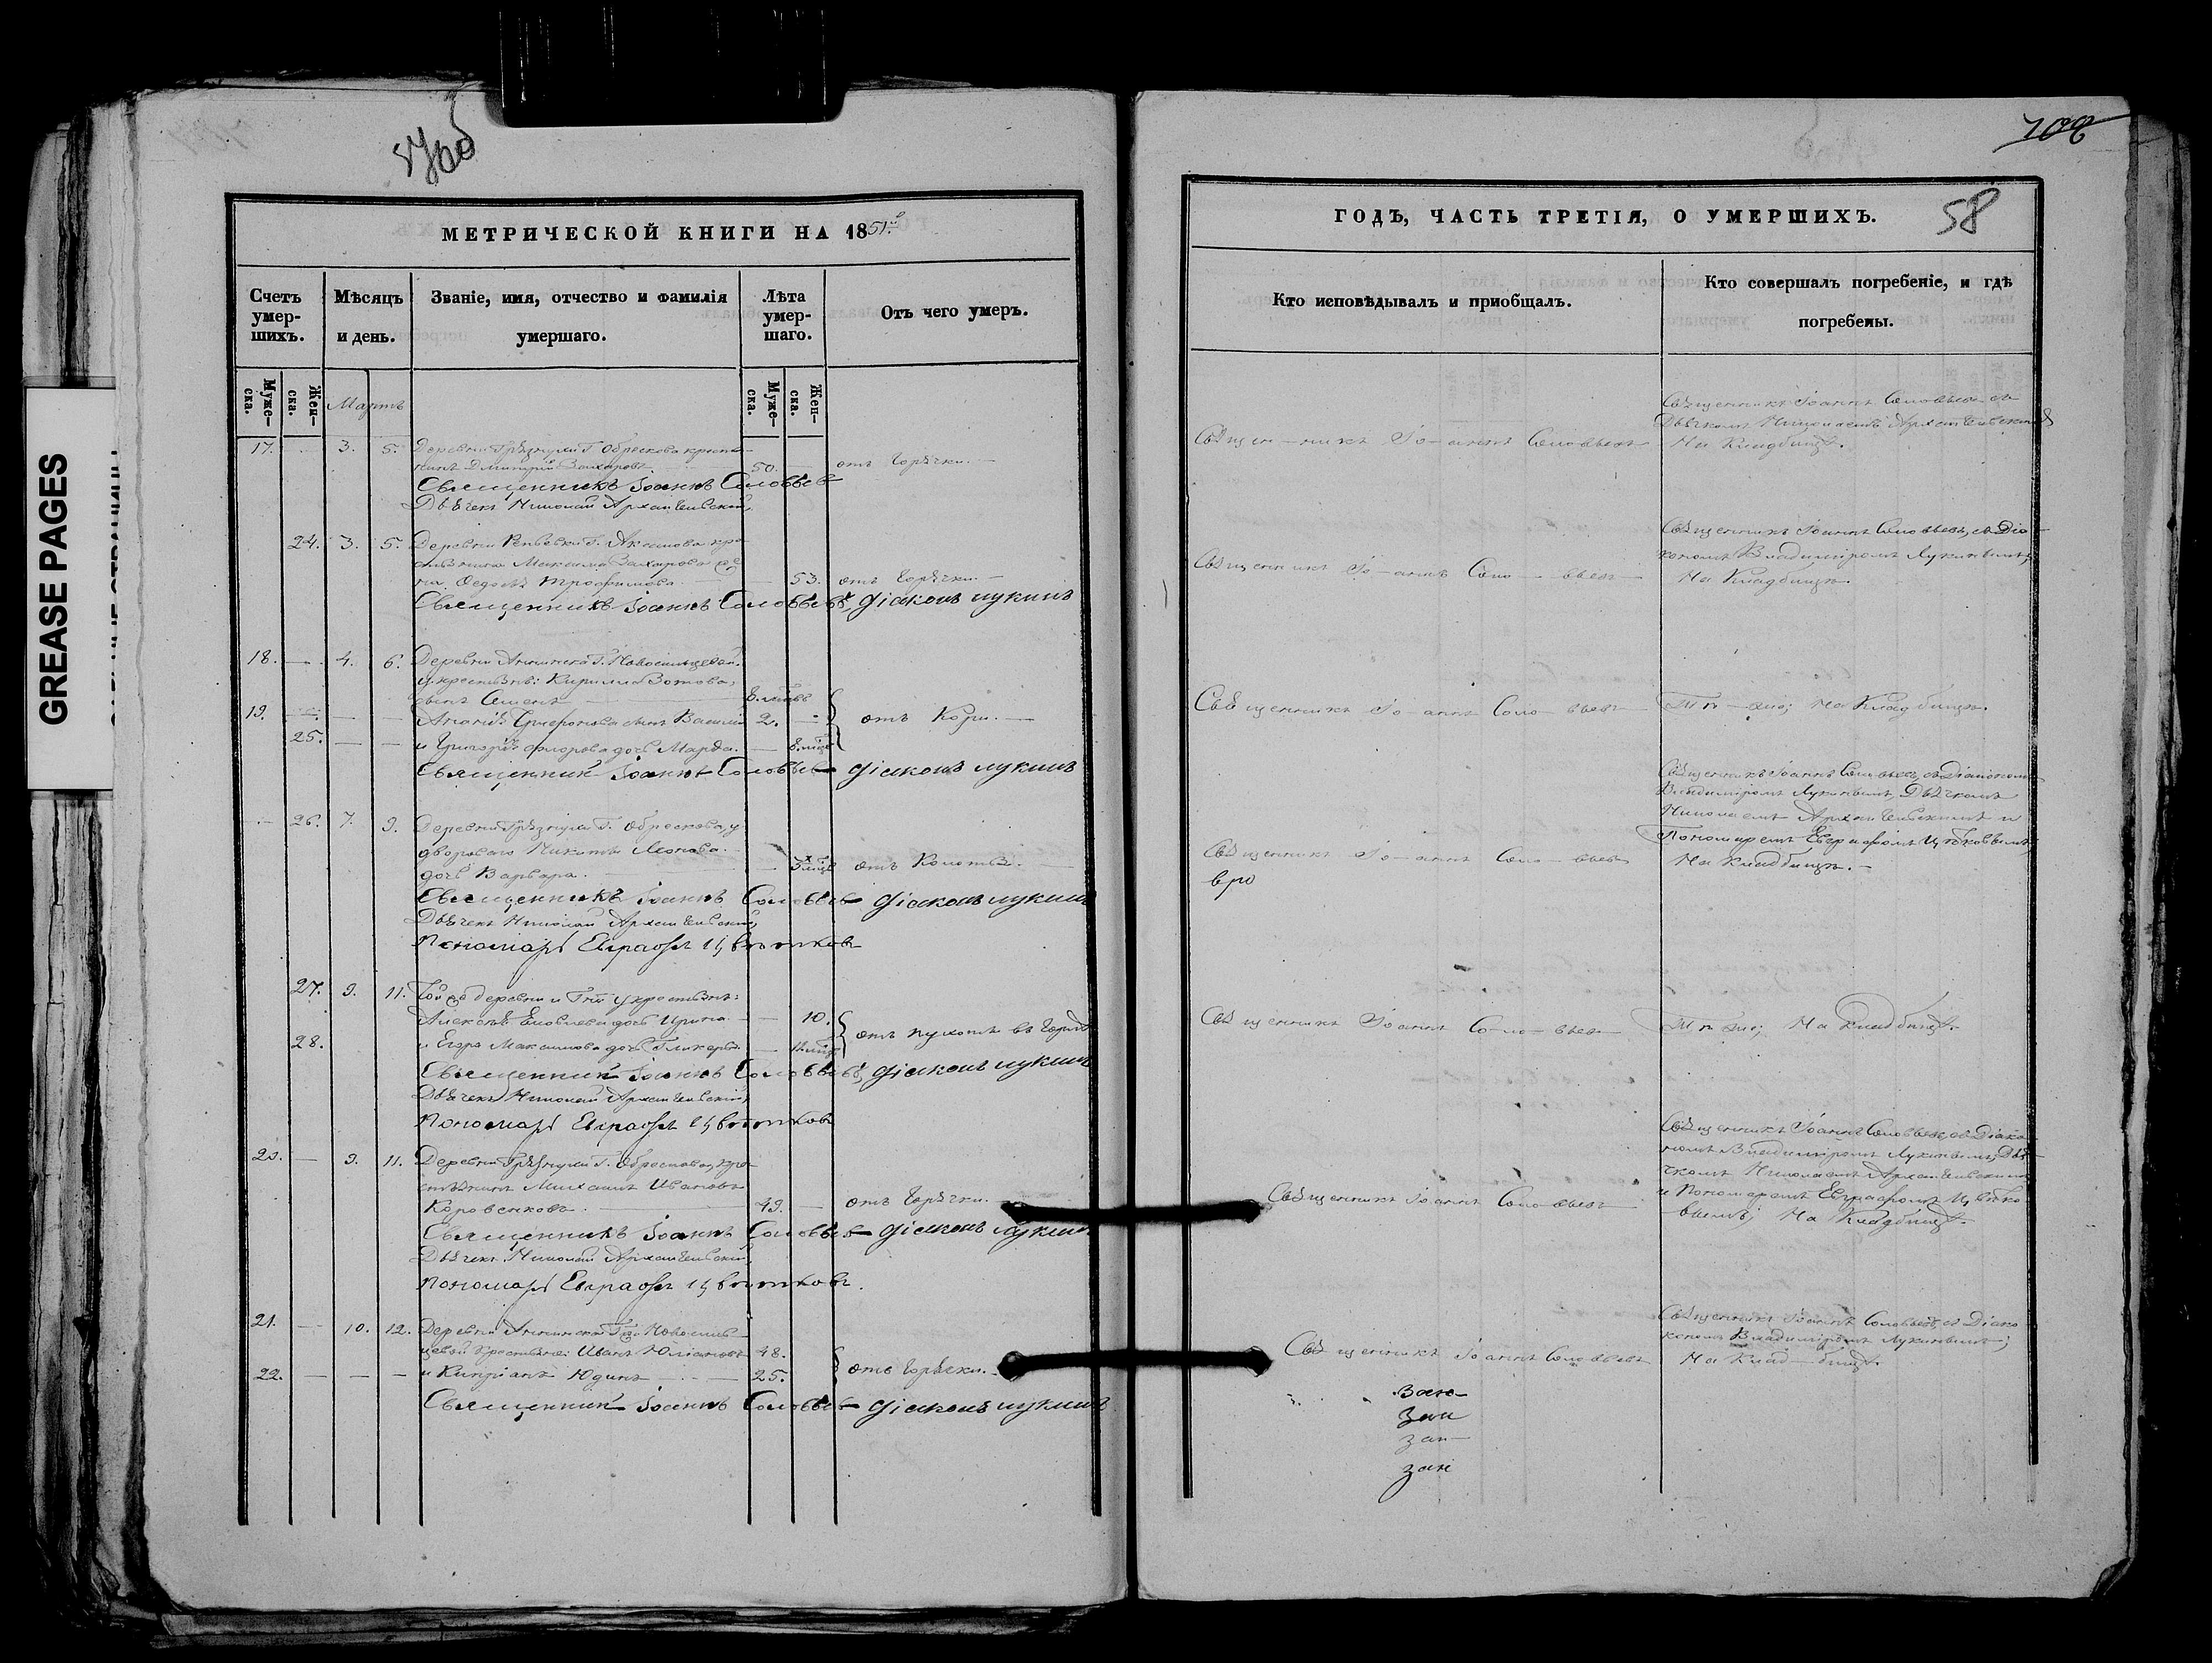 GREASE PAGES
МЕТРИЧЕСКОЙ КНИГИ НА 1851.
Счетъ умер-шихъ.
Мѣсяцъ и день.
Званіе, имя, отчество и фамилія умершаго.
Лѣта умер-шаго.
Отъ чего умеръ.
Муже-ска.
Жен-ска.
Мартъ
Муже-ска.
Жен-ска.
17. 3. 5. Деревни Грѣзнухи Г. Обрескова крестья-
нинъ Дмитрий Захаровъ 50. отъ Горѣчки.
Священникъ Іоаннъ Соловьев
Дьячекъ Николай Архангельский
24. 3. 5. Деревни Репьевки Г. Акимова кре-
стьянина Максима Захарова же-
на Федосья Трофимова 53. отъ Горѣчки.
Священникъ Іоаннъ Соловьевъ, діаконъ лукинъ
18. 4. 6. Деревни Аннинска Г. Новосильцевой
у крестьянъ: Кирилла Зотова,
сынъ Семенъ
19. сынъ Василій 2. отъ Кори.
25. и Григорія Флорова дочь Марфа.
Священник Іоаннъ Соловьев діаконъ лукинъ
26. 7. 9. Деревни Грѣзнухи Г. Обрескова, у
двороваго Никиты Леонова
дочь Варвара. отъ Колотья.
Священникъ Іоаннъ Соловьев діаконъ лукинъ
Дьячекъ Николай Архангельский
пономарь Евграфъ Цвѣтковъ
27. 9. 11. Той же деревни и Г. у крестьянъ:
Алексѣя Яковлева дочь Ирина 10.
28. и Егора Максимова дочь Гликерья
Священник Іоаннъ Соловьевъ, діаконъ лукинъ
Дьячекъ Николай Архангельский
пономарь Евграфъ Цвѣтковъ
20. 9. 11. Деревни Грѣзнухи Г. Обрескова, кре-
стьянинъ Михаилъ Ивановъ
Коровенковъ 49. отъ Горѣчки.
Священникъ Іоаннъ Соловьев діаконъ лукинъ
Дьячекъ Николай Архангельский
пономарь Евграфъ Цвѣтковъ.
21. 10. 12. Деревни Аннинска Новосиль-
цевой Крестьяне: Иванъ 48.
22. и Кипріанъ Юдинъ 25. отъ Горѣчки.
Священник Іоаннъ Соловьев діаконъ лукинъ
ГОДЪ, ЧАСТЬ ТРЕТІЯ, О УМЕРШИХЪ.
58
Кто исповѣдывалъ и пріобщалъ.
Кто совершалъ погребеніе, и гдѣ погребены.
Священникъ Іоаннъ Соловьевъ съ
Дьячкомъ Николаемъ Архангельскимъ
Священникъ Іоаннъ Соловьевъ На Кладбищѣ.
Священникъ Іоаннъ Соловьевъ, съ Діа-
кономъ Владиміромъ Лукинымъ;
Священникъ Іоаннъ Соловьевъ На Кладбищѣ.
Священникъ Іоаннъ Соловьевъ Тѣ-же; На Кладбищѣ.
Священникъ Іоаннъ Соловьевъ, съ Діакономъ
Владиміромъ Лукинымъ, Дьячкомъ
Николаемъ Архангельскимъ и
Пономаремъ Евграфомъ Цвѣтковымъ;
Священникъ Іоаннъ Соловьевъ На Кладбищѣ.
Священникъ Іоаннъ Соловьевъ Тѣ же; На Кладбищѣ.
Священникъ Іоаннъ Соловьевъ, съ Діако-
номъ Владиміромъ Лукинымъ, Дья-
чкомъ Николаемъ Архангельскимъ
и Пономаремъ Евграфомъ Цвѣтко-
вымъ; На Кладбищѣ.
Священникъ Іоаннъ Соловьевъ
Священникъ Іоаннъ Соловьевъ, съ Діа-
кономъ Владиміромъ Лукинымъ;
Священникъ Іоаннъ Соловьевъ На Кладбищѣ.